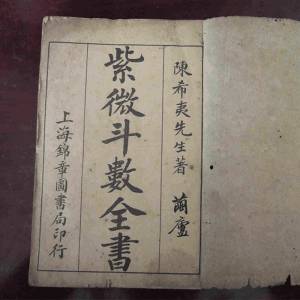 陳希夷先生著
繭廬
紫微斗數全書
上海錦章圖書局印行